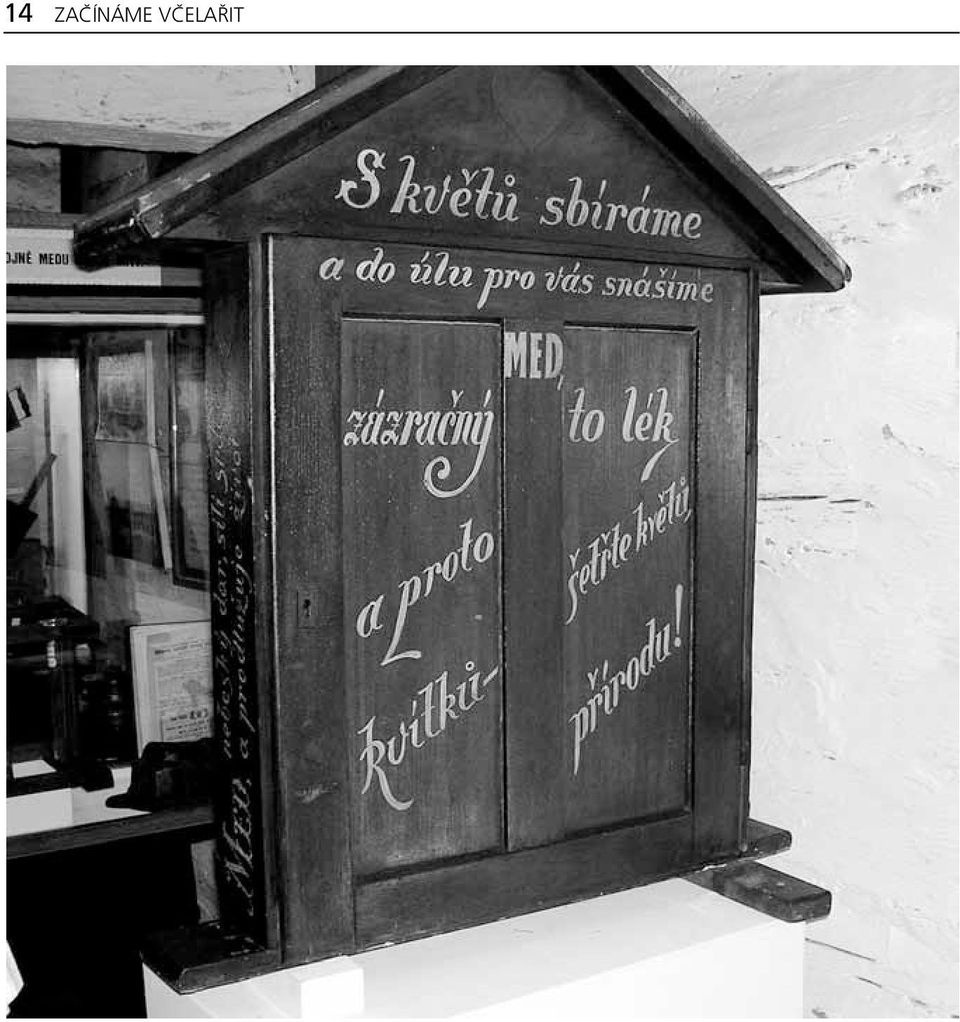 14 ZAČÍNÁME VČELAŘIT
S květů sbíráme
a do úlu pro vás snášíme
MED,
zázračný
to lék
a proto
šetřte květů,
kvítků-
přírodu!
MEDU
nebeský dar, sílí
a prodlužuje